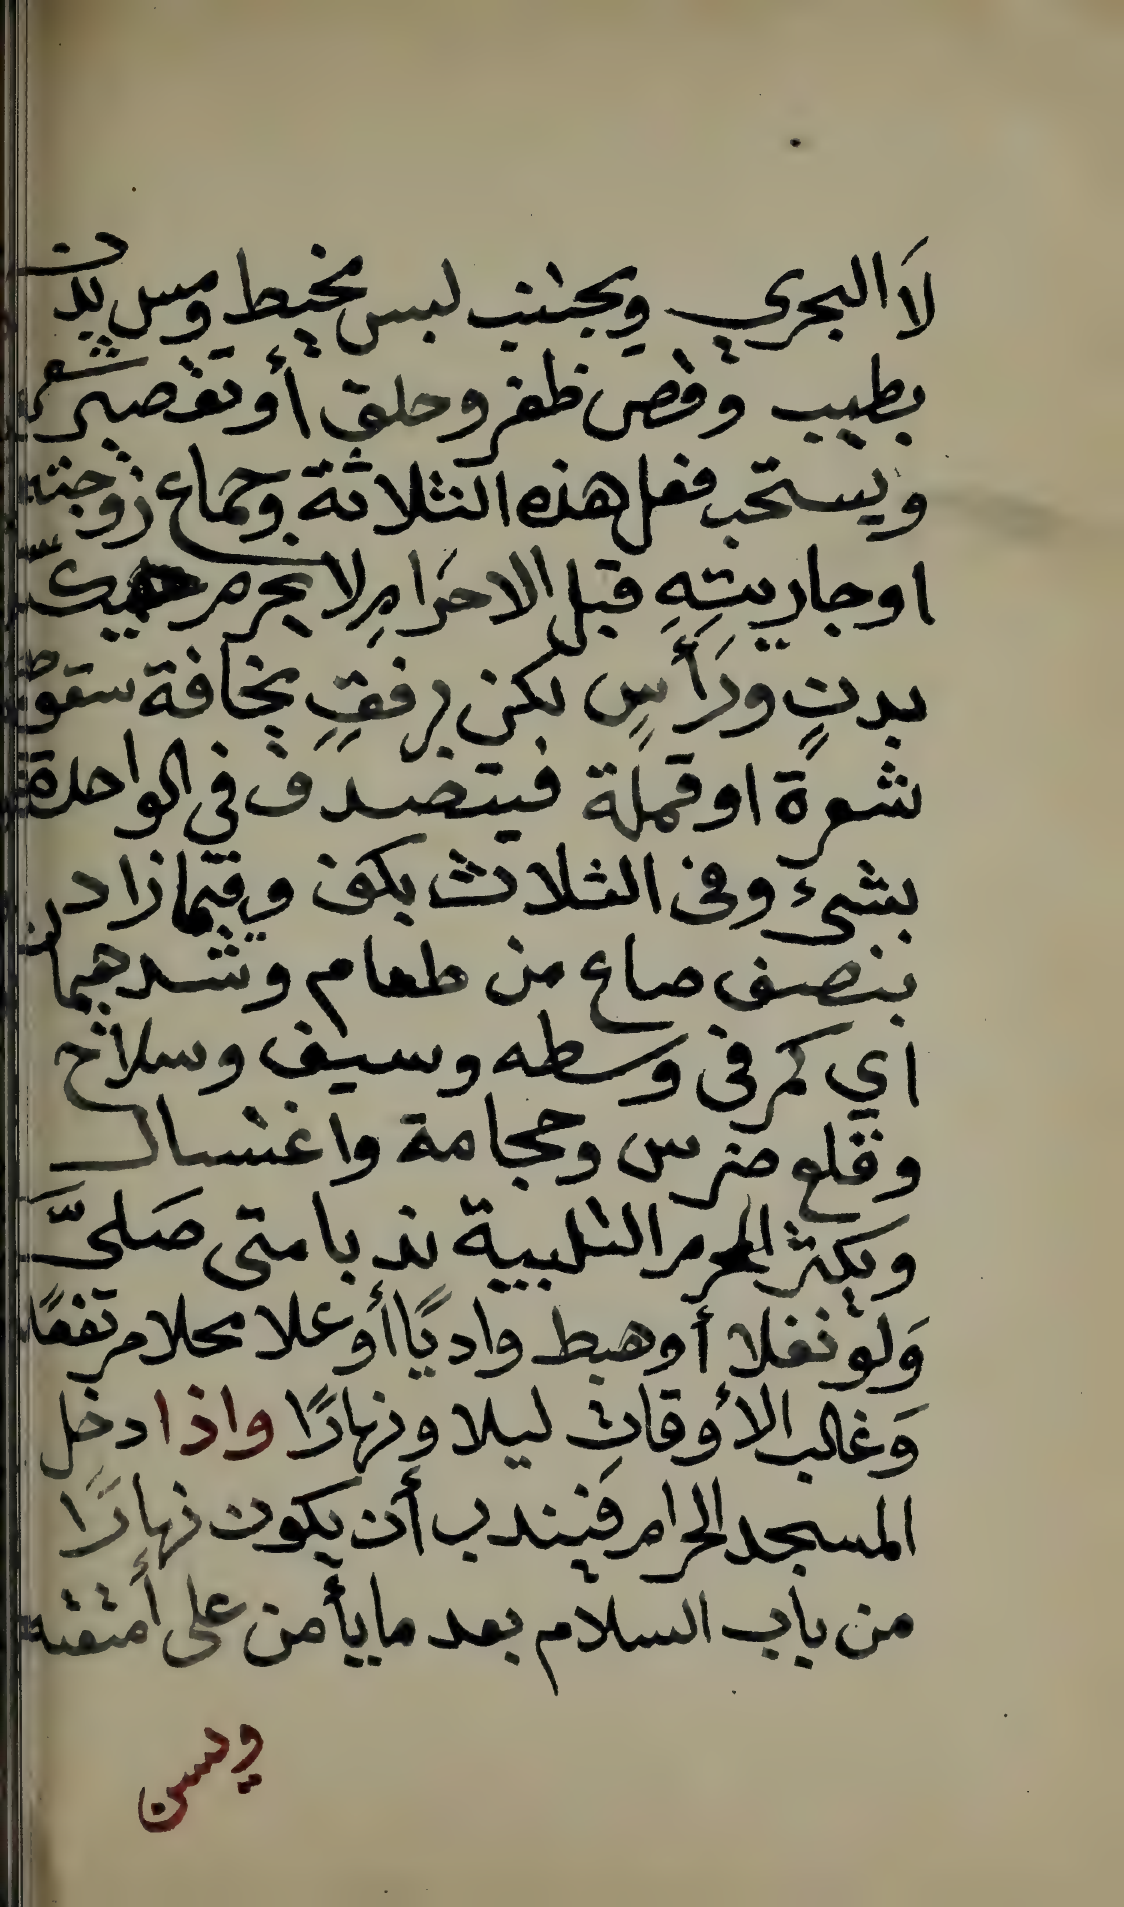 لَا البحري ويجتنب لبس مخيط ومس بدن
بطيب وقص ظفر وحلق أو تقصير شعر
ويستحب فعل هذه الثلاثة وجماع زوجته
او جاريتِهِ قبل الاحرَامِ لا يحرم
بدنٍ ورَأسٍ لكن برفقٍ مخافة سقوط
شعرةً او قملة فيتصدق في الواحدة
بشئ وفي الثلاث بكف وفيما زاد
بنصف صاع من طعام وشد هميان
اي كمر في وسطه وسيف وسلاح
وقلع ضرس وحجامة واغتسال
ويكثر المحرم التلبية ندبا متى صَلىَّ
وَلو نفلا أو هبط واديًا أو علا محلا مرتفعًا
وَغالب الأوقات ليلا ونهارًا واذا دخل
المسجد الحرام فَيندب أن يكون نهارًا
من باب السلام بعد ما يأمن على أمتعته
ويسن